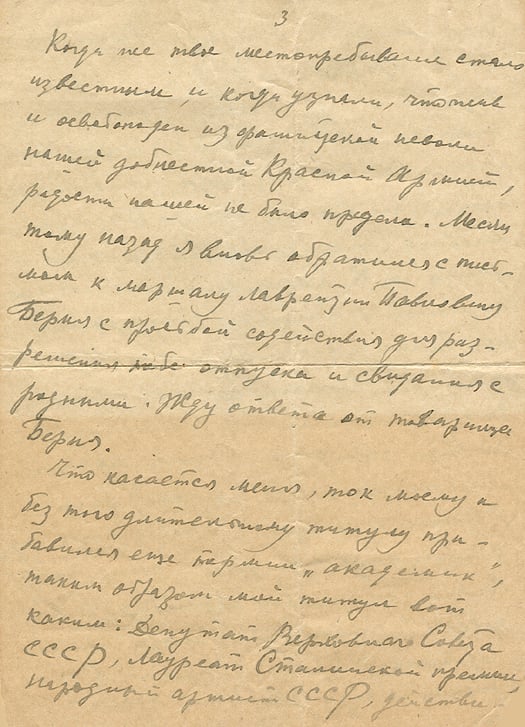 3
Когда же твое местопребывание стало
известным, и когда узнали, что жив
и освобожден из фашистской неволи
нашей доблестной Красной Армией,
радости нашей не было предела. Месяц
тому назад я вновь обратился с пись-
мом к маршалу Лаврентии Павловичу
Берия с просьбой содействия для раз-
решения тебе отпуска и свидания с
родными. Жду ответа от товарища
Берия.
Что касается меня, так моему и
без того длительному титулу при-
бавился еще термин „академик",
таким образом мой титул вот
каким: Депутат Верховного Совета
СССР, лауреат Сталинской премии,
народный артист СССР, действи-